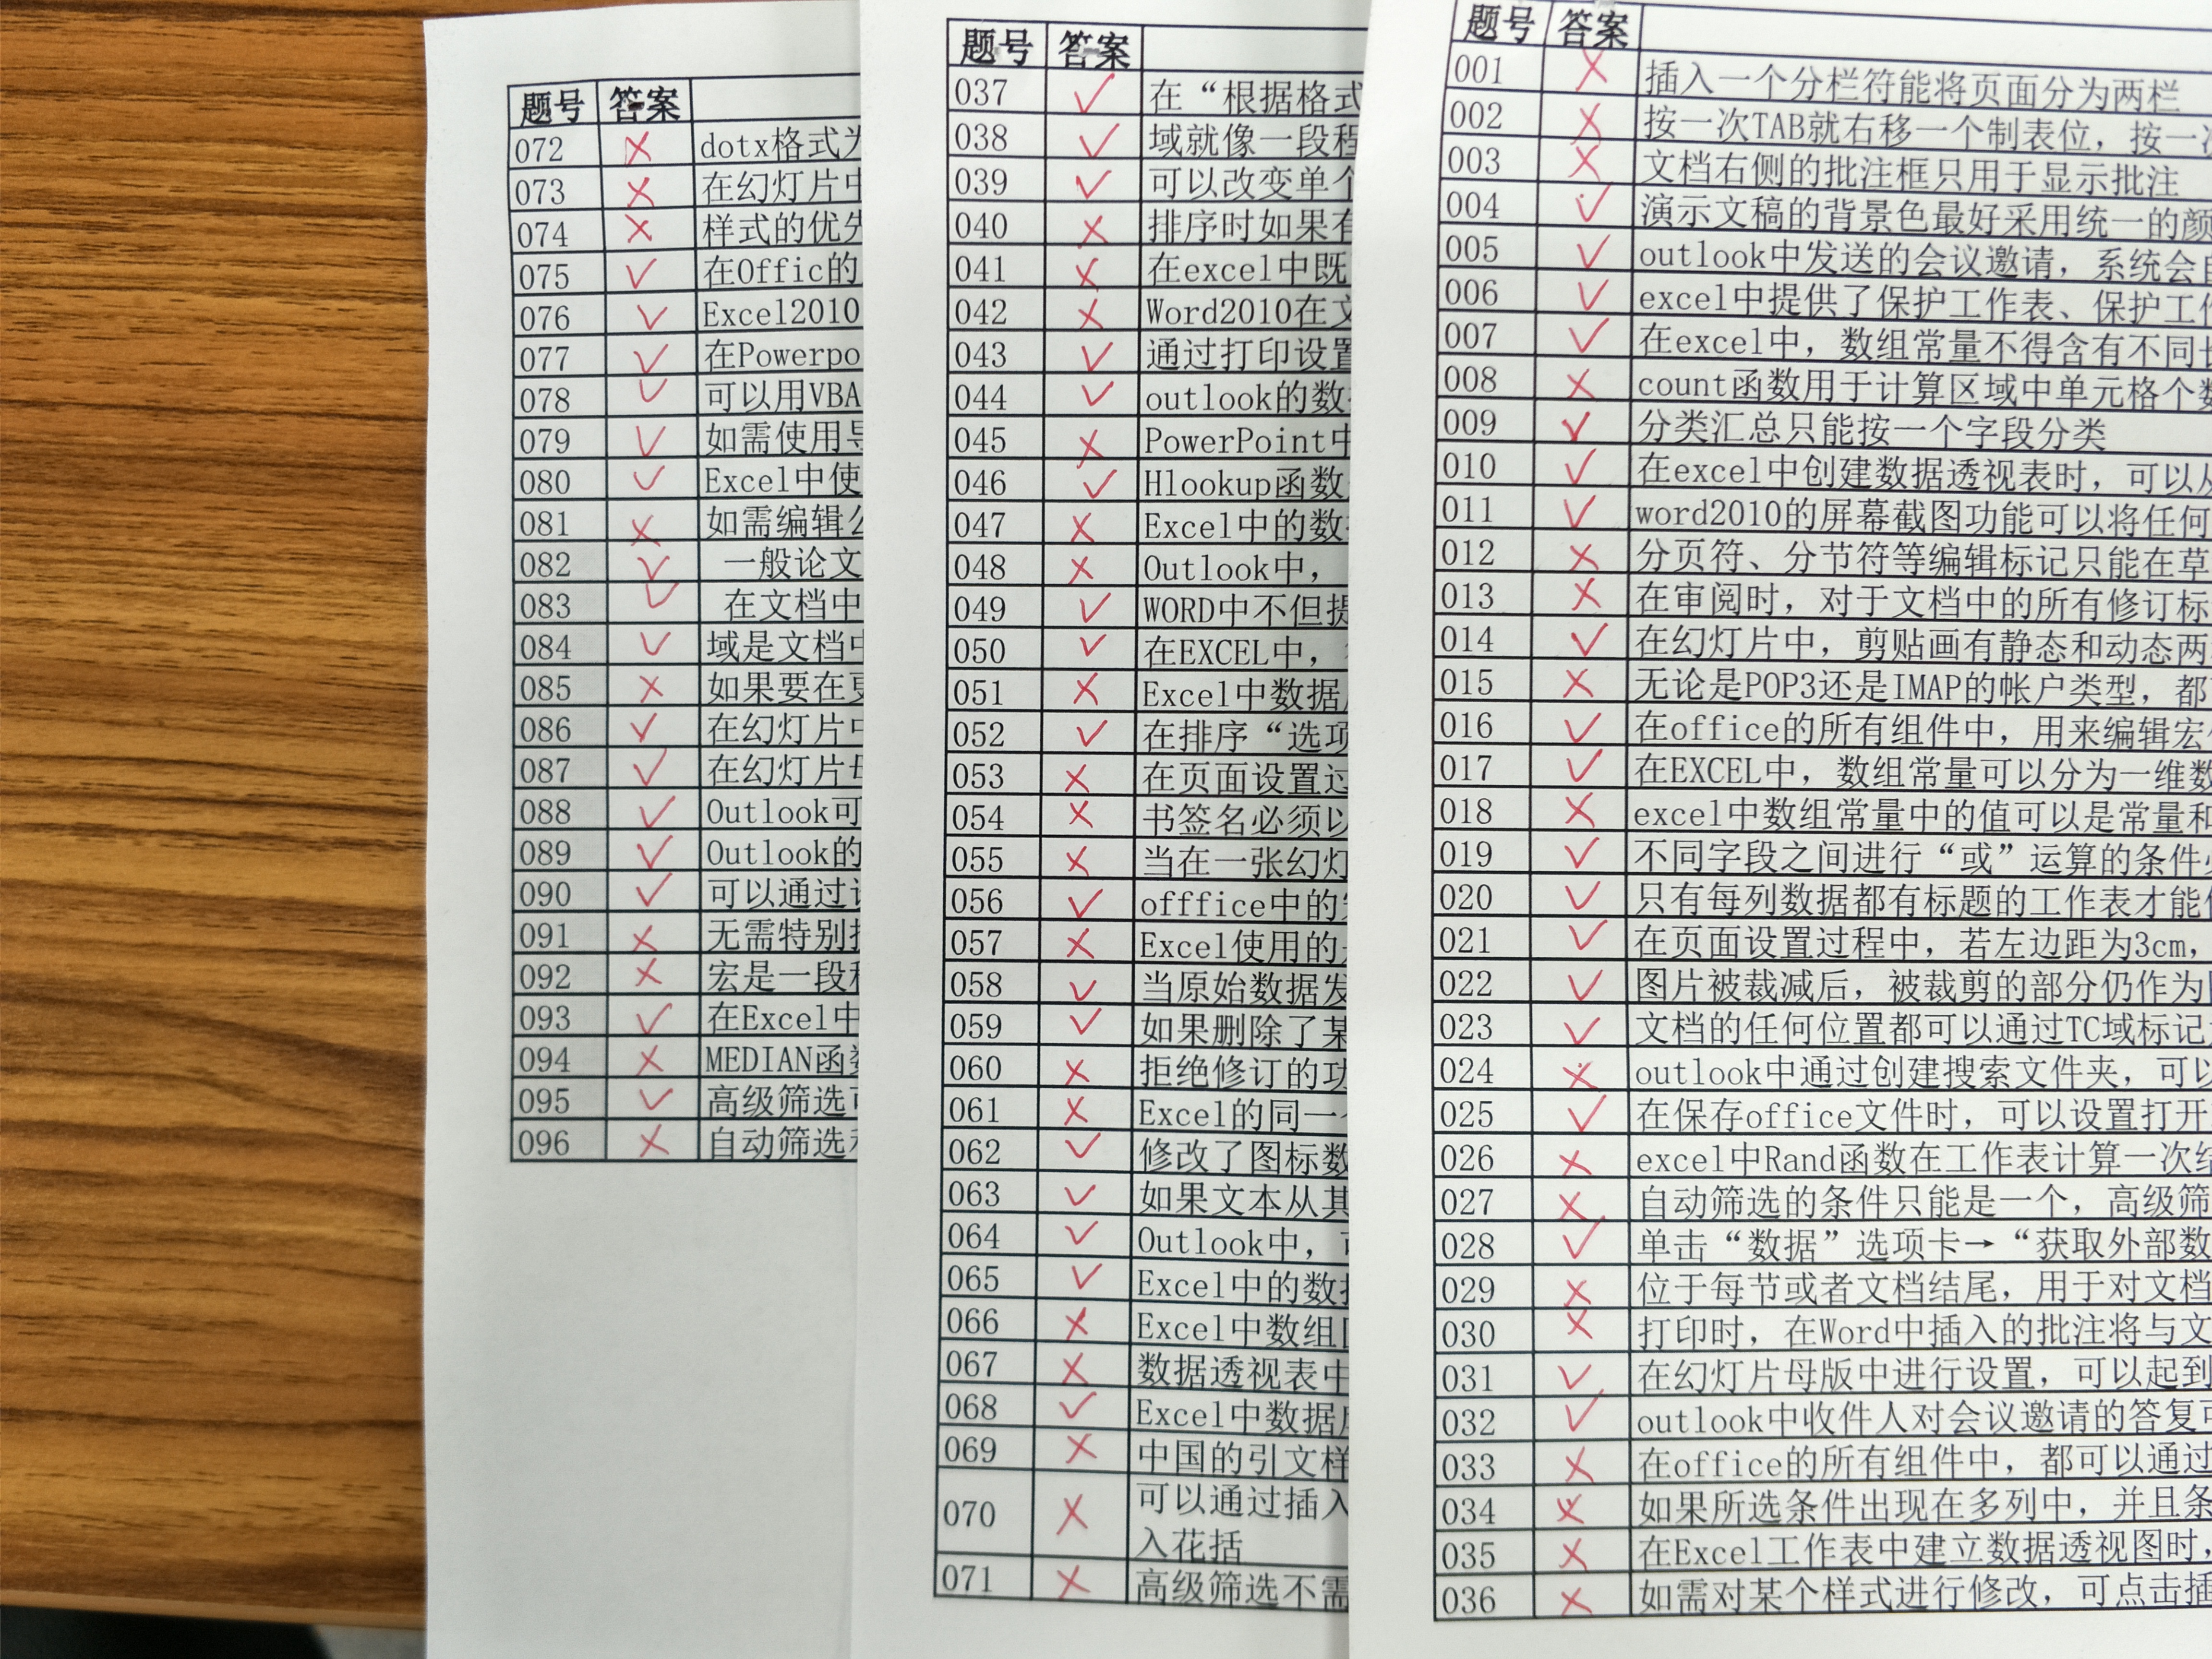 题号 答案
072 × dotx格式为
073 × 在幻灯片中
074 × 样式的优先
075 ✓ 在Offic的
076 ✓ Excel2010
077 ✓ 在Powerpo
078 ✓ 可以用VBA
079 ✓ 如需使用导
080 ✓ Excel中使
081 × 如需编辑公
082 ✓ 一般论文
083 ✓ 在文档中
084 ✓ 域是文档中
085 × 如果要在更
086 ✓ 在幻灯片中
087 ✓ 在幻灯片母
088 ✓ Outlook可
089 ✓ Outlook的
090 ✓ 可以通过
091 × 无需特别
092 × 宏是一段程
093 ✓ 在Excel中
094 × MEDIAN函数
095 ✓ 高级筛选可
096 × 自动筛选
题号 答案
037 ✓ 在“根据格式
038 ✓ 域就像一段程
039 ✓ 可以改变单个
040 × 排序时如果有
041 × 在excel中既
042 × Word2010在文
043 ✓ 通过打印设置
044 ✓ outlook的数
045 × PowerPoint中
046 ✓ Hlookup函数
047 × Excel中的数
048 × Outlook中，
049 ✓ WORD中不但提
050 ✓ 在EXCEL中，
051 × Excel中数据
052 ✓ 在排序“选项
053 × 在页面设置过
054 × 书签名必须以
055 × 当在一张幻灯
056 ✓ offfice中的
057 × Excel使用的
058 ✓ 当原始数据发
059 ✓ 如果删除了某
060 × 拒绝修订的功
061 × Excel的同一
062 ✓ 修改了图标数
063 ✓ 如果文本从其
064 ✓ Outlook中，可
065 ✓ Excel中的数据
066 × Excel中数组
067 × 数据透视表中
068 ✓ Excel中数据库
069 × 中国的引文样
070 × 可以通过插入
入花括
071 × 高级筛选不需
题号 答案
001 × 插入一个分栏符能将页面分为两栏
002 × 按一次TAB就右移一个制表位，按一次
003 × 文档右侧的批注框只用于显示批注
004 ✓ 演示文稿的背景色最好采用统一的颜
005 ✓ outlook中发送的会议邀请，系统会自
006 ✓ excel中提供了保护工作表、保护工作
007 ✓ 在excel中，数组常量不得含有不同长
008 × count函数用于计算区域中单元格个数
009 ✓ 分类汇总只能按一个字段分类
010 ✓ 在excel中创建数据透视表时，可以从
011 ✓ word2010的屏幕截图功能可以将任何
012 × 分页符、分节符等编辑标记只能在草
013 × 在审阅时，对于文档中的所有修订标
014 ✓ 在幻灯片中，剪贴画有静态和动态两
015 × 无论是POP3还是IMAP的帐户类型，都
016 ✓ 在office的所有组件中，用来编辑宏
017 ✓ 在EXCEL中，数组常量可以分为一维数
018 × excel中数组常量中的值可以是常量和
019 ✓ 不同字段之间进行“或”运算的条件必
020 ✓ 只有每列数据都有标题的工作表才能使
021 ✓ 在页面设置过程中，若左边距为3cm，
022 ✓ 图片被裁减后，被裁剪的部分仍作为图
023 ✓ 文档的任何位置都可以通过TC域标记
024 × outlook中通过创建搜索文件夹，可以
025 ✓ 在保存office文件时，可以设置打开
026 × excel中Rand函数在工作表计算一次结
027 × 自动筛选的条件只能是一个，高级筛
028 ✓ 单击“数据”选项卡→“获取外部数
029 × 位于每节或者文档结尾，用于对文档
030 × 打印时，在Word中插入的批注将与文
031 ✓ 在幻灯片母版中进行设置，可以起到
032 ✓ outlook中收件人对会议邀请的答复可
033 × 在office的所有组件中，都可以通过
034 × 如果所选条件出现在多列中，并且条
035 × 在Excel工作表中建立数据透视图时，
036 × 如需对某个样式进行修改，可点击插